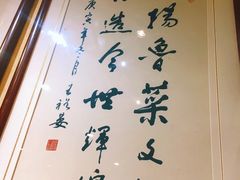 揚魯菜文
造今世輝
庚寅年月王裕晏